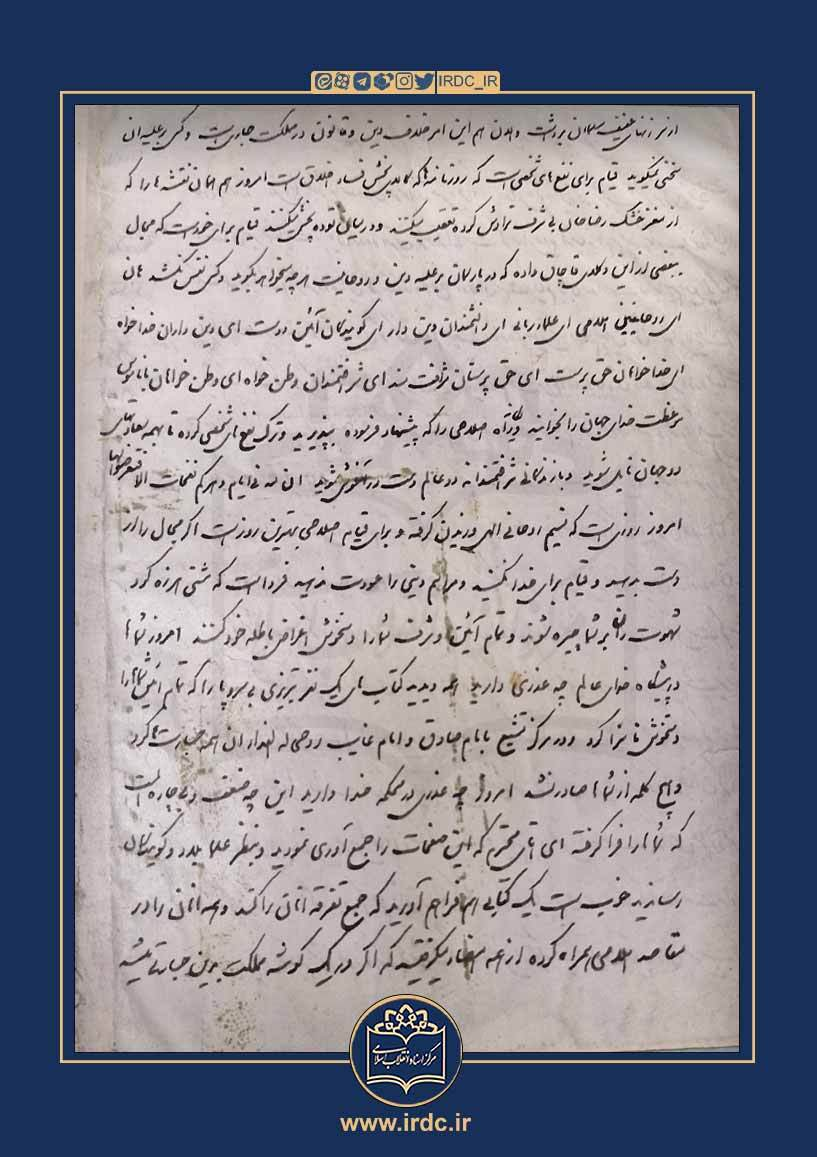 IRDC_IR
از سر زنهای عفیف مسلمان برداشت و الان هم این امر خلاف دین و قانون در مملکت جاری است و کسی بر علیه آن
سخنی نمیگوید قیام برای نفع های شخصی است که روزنامه ها که کالای پخش فساد اخلاق است امروز هم همان نقشه ها را که
از مغز خشک رضا خان بی شرف تراوش کرده تعقیب میکنند و در میان توده پخش میکنند قیام برای خود است که مجال
ببعضی از این وکلای قاچاق داده که در پارلمان بر علیه دین و روحانیت هر چه میخواهد بگوید و کسی نفس نکشد هان
ای روحانیین اسلامی ای علماء ربانی ای دانشمندان دین دار ای گویندگان آئین دوست ای دین داران خدا خواه
ای خدا خواهان حق پرست ای حق پرستان شرافتمند ای شرافتمندان وطن خواه ای وطن خواهان با ناموس
موعظت خدای جهان را بخوانید و یگانه راه اصلاحی را که پیشنهاد فرموده بپذیرید و ترک نفع های شخصی کرده تا بهمه سعادتهای
دو جهان نایل شوید و با زندگانی شرافتمندانه دو عالم دست در آغوش شوید ان لله فی ایام دهرکم نفحات الا فتعرضوا لها
امروز روزی است که نسیم روحانی الهی وزیدن گرفته و برای قیام اصلاحی بهترین روز است اگر مجال را از
دست بدهید و قیام برای خدا نکنید و مراسم دینی را عودت ندهید فردا است که مشتی هرزه گرد
شهوت ران بر شما چیره شوند و تمام آئین و شرف شما را دستخوش اغراض باطله خود کنند امروز شماها
در پیشگاه خدای عالم چه عذری دارید همه دیدید کتاب های یک نفر تبریزی بی سر و پا را که تمام آئین شماها را
دستخوش ناسزا کرد و در مرکز تشیع بامام صادق و امام غایب روحی له الفداء آن همه جسارت ها کرد
و هیچ کلمه از شماها صادر نشد امروز چه عذری در محکمه خدا دارید این چه ضعف و بیچاره گیست
که شماها را فرا گرفته ای آقای محترم که این صفحات را جمع آوری نمودید و بنظر علماء بلاد و گویندگان
رساندید خوب است یک کتابی هم فراهم آورید که جمع تفرقه آنان را کند و همه آنان را در
مقاصد اسلامی همراه کرده از همه امضاء میگرفتید که اگر در یک گوشه مملکت بدین جسارتی میشد
مرکز اسناد انقلاب اسلامی
www.irdc.ir